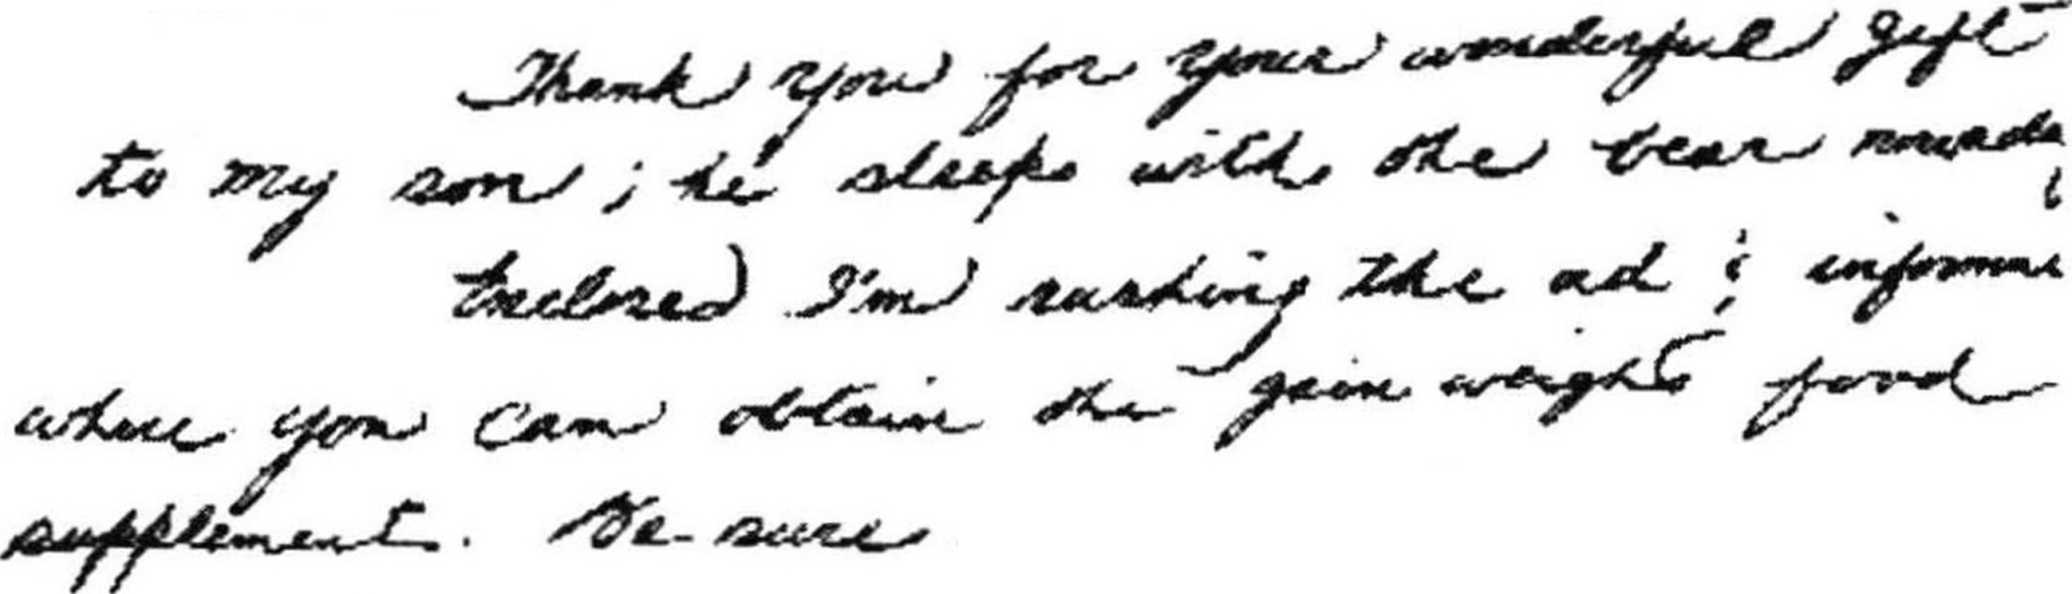 Thank you for your wonderful gift
to my son; he sleeps with the bear nowada
Enclosed I'm rushing the ad & informa
where you can obtain the gain weight food
supplement. Be sure